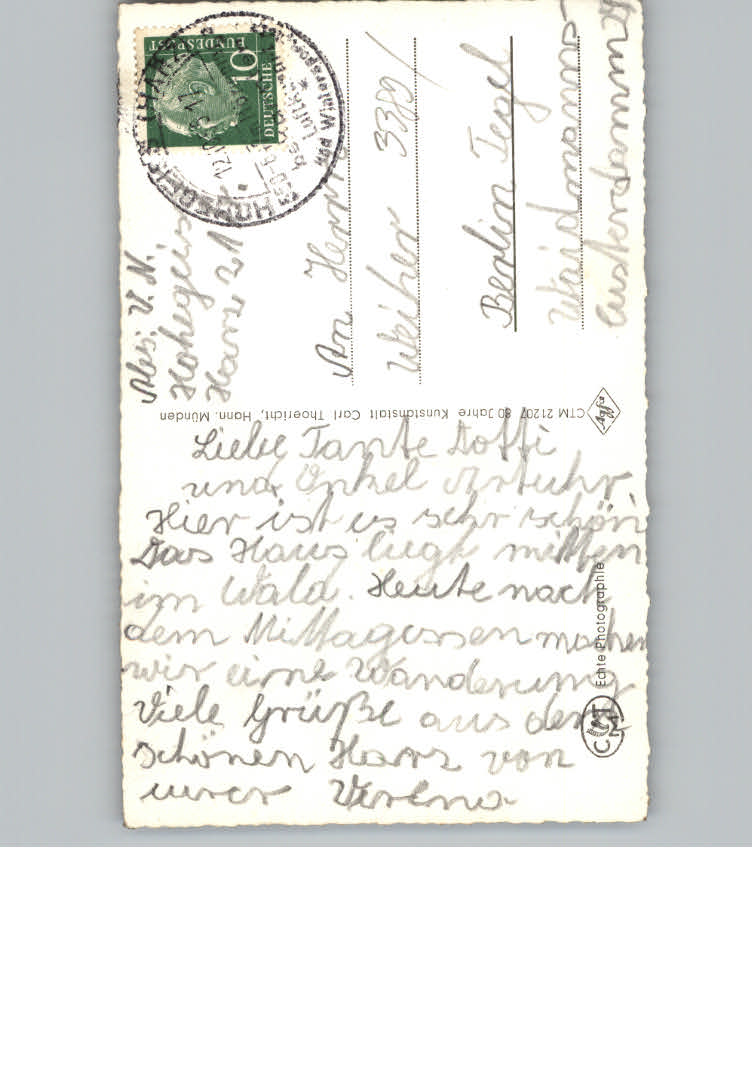 Liebe Tante Lotti
und Onkel Artuhr
Hier ist es sehr schön
Das Haus liegt mitten
im Wald. Heute nach
dem Mittagessen machen
wir eine Wanderung
Viele Grüße aus dem
schönen Harz von
eurer Verena
Abs. V. N.
Hohegeiss
Harz 21
An Herrn
Weiher 3389/
Berlin Tegel
Waidmanns-
CTM 21207 80 Jahre Kunstanstalt Carl Thoericht, Hann. Münden
Agfa
Echte Photographie
CTM
DEUTSCHE
BUNDESPOST
10
HOHEGEISS (HARZ)